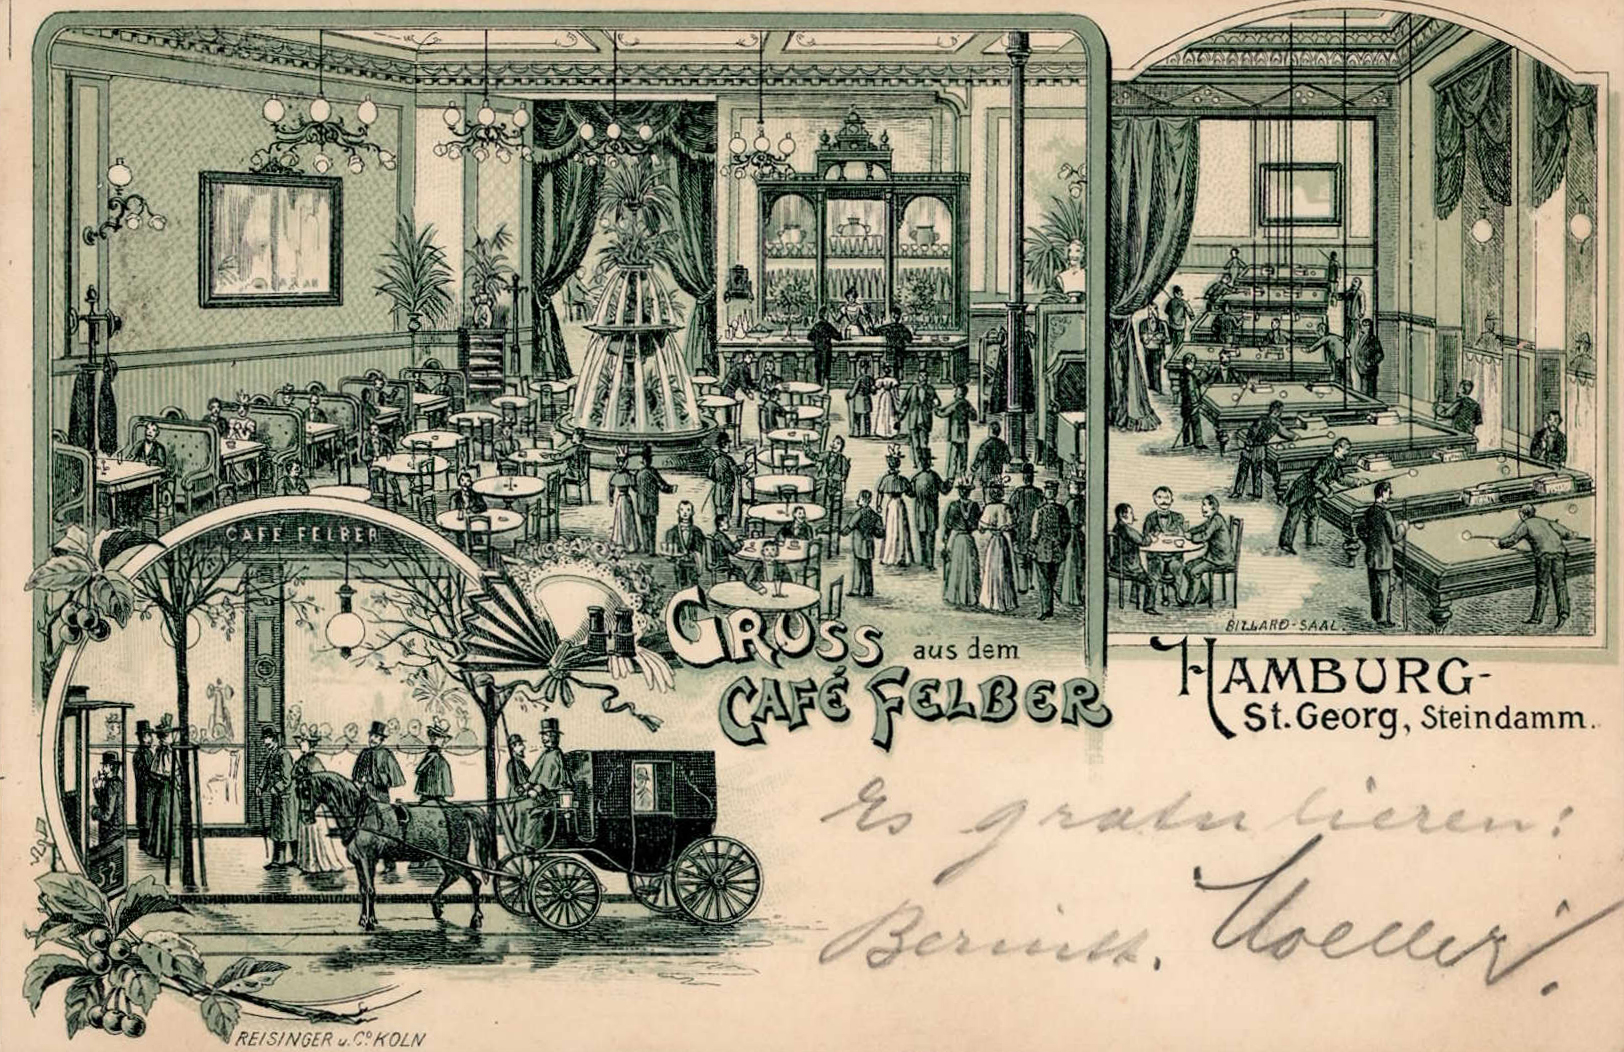 CAFE FELBER
BILLARD-SAAL.
GRUSS aus dem
CAFÉ FELBER
HAMBURG-
St. Georg, Steindamm.
Es gratulieren:
52
REISINGER u. Co KÖLN